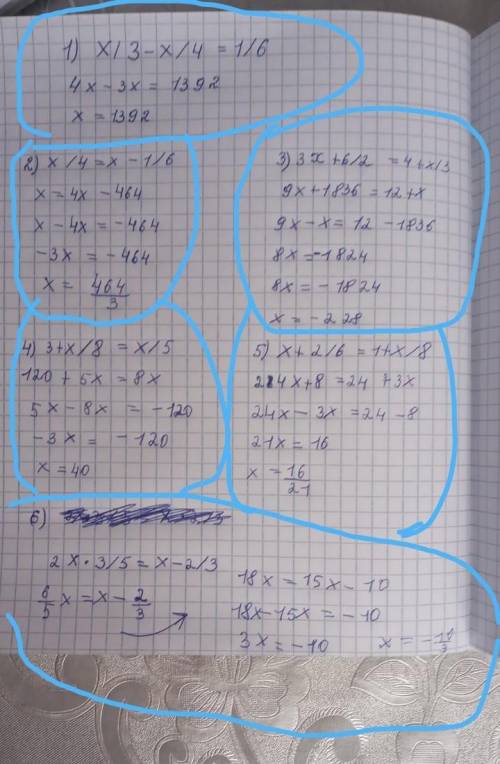 1) x/3 - x/4 = 1/6
4x - 3x = 1392
x = 1392
2) x/4 = x - 1/6
x = 4x - 464
x - 4x = -464
-3x = -464
x = 464/3
3) 3x + 6/2 = 4 + x/3
9x + 1836 = 12 + x
9x - x = 12 - 1836
8x = -1824
8x = - 1824
x = - 228
4) 3 + x/8 = x/5
120 + 5x = 8x
5x - 8x = -120
-3x = -120
x = 40
5) x + 2/6 = 1 + x/8
24x + 8 = 24 + 3x
24x - 3x = 24 - 8
21x = 16
x = 16/21
6)
2x · 3/5 = x - 2/3
6/5 x = x - 2/3
18x = 15x - 10
18x - 15x = - 10
3x = -10
x = - 10/3